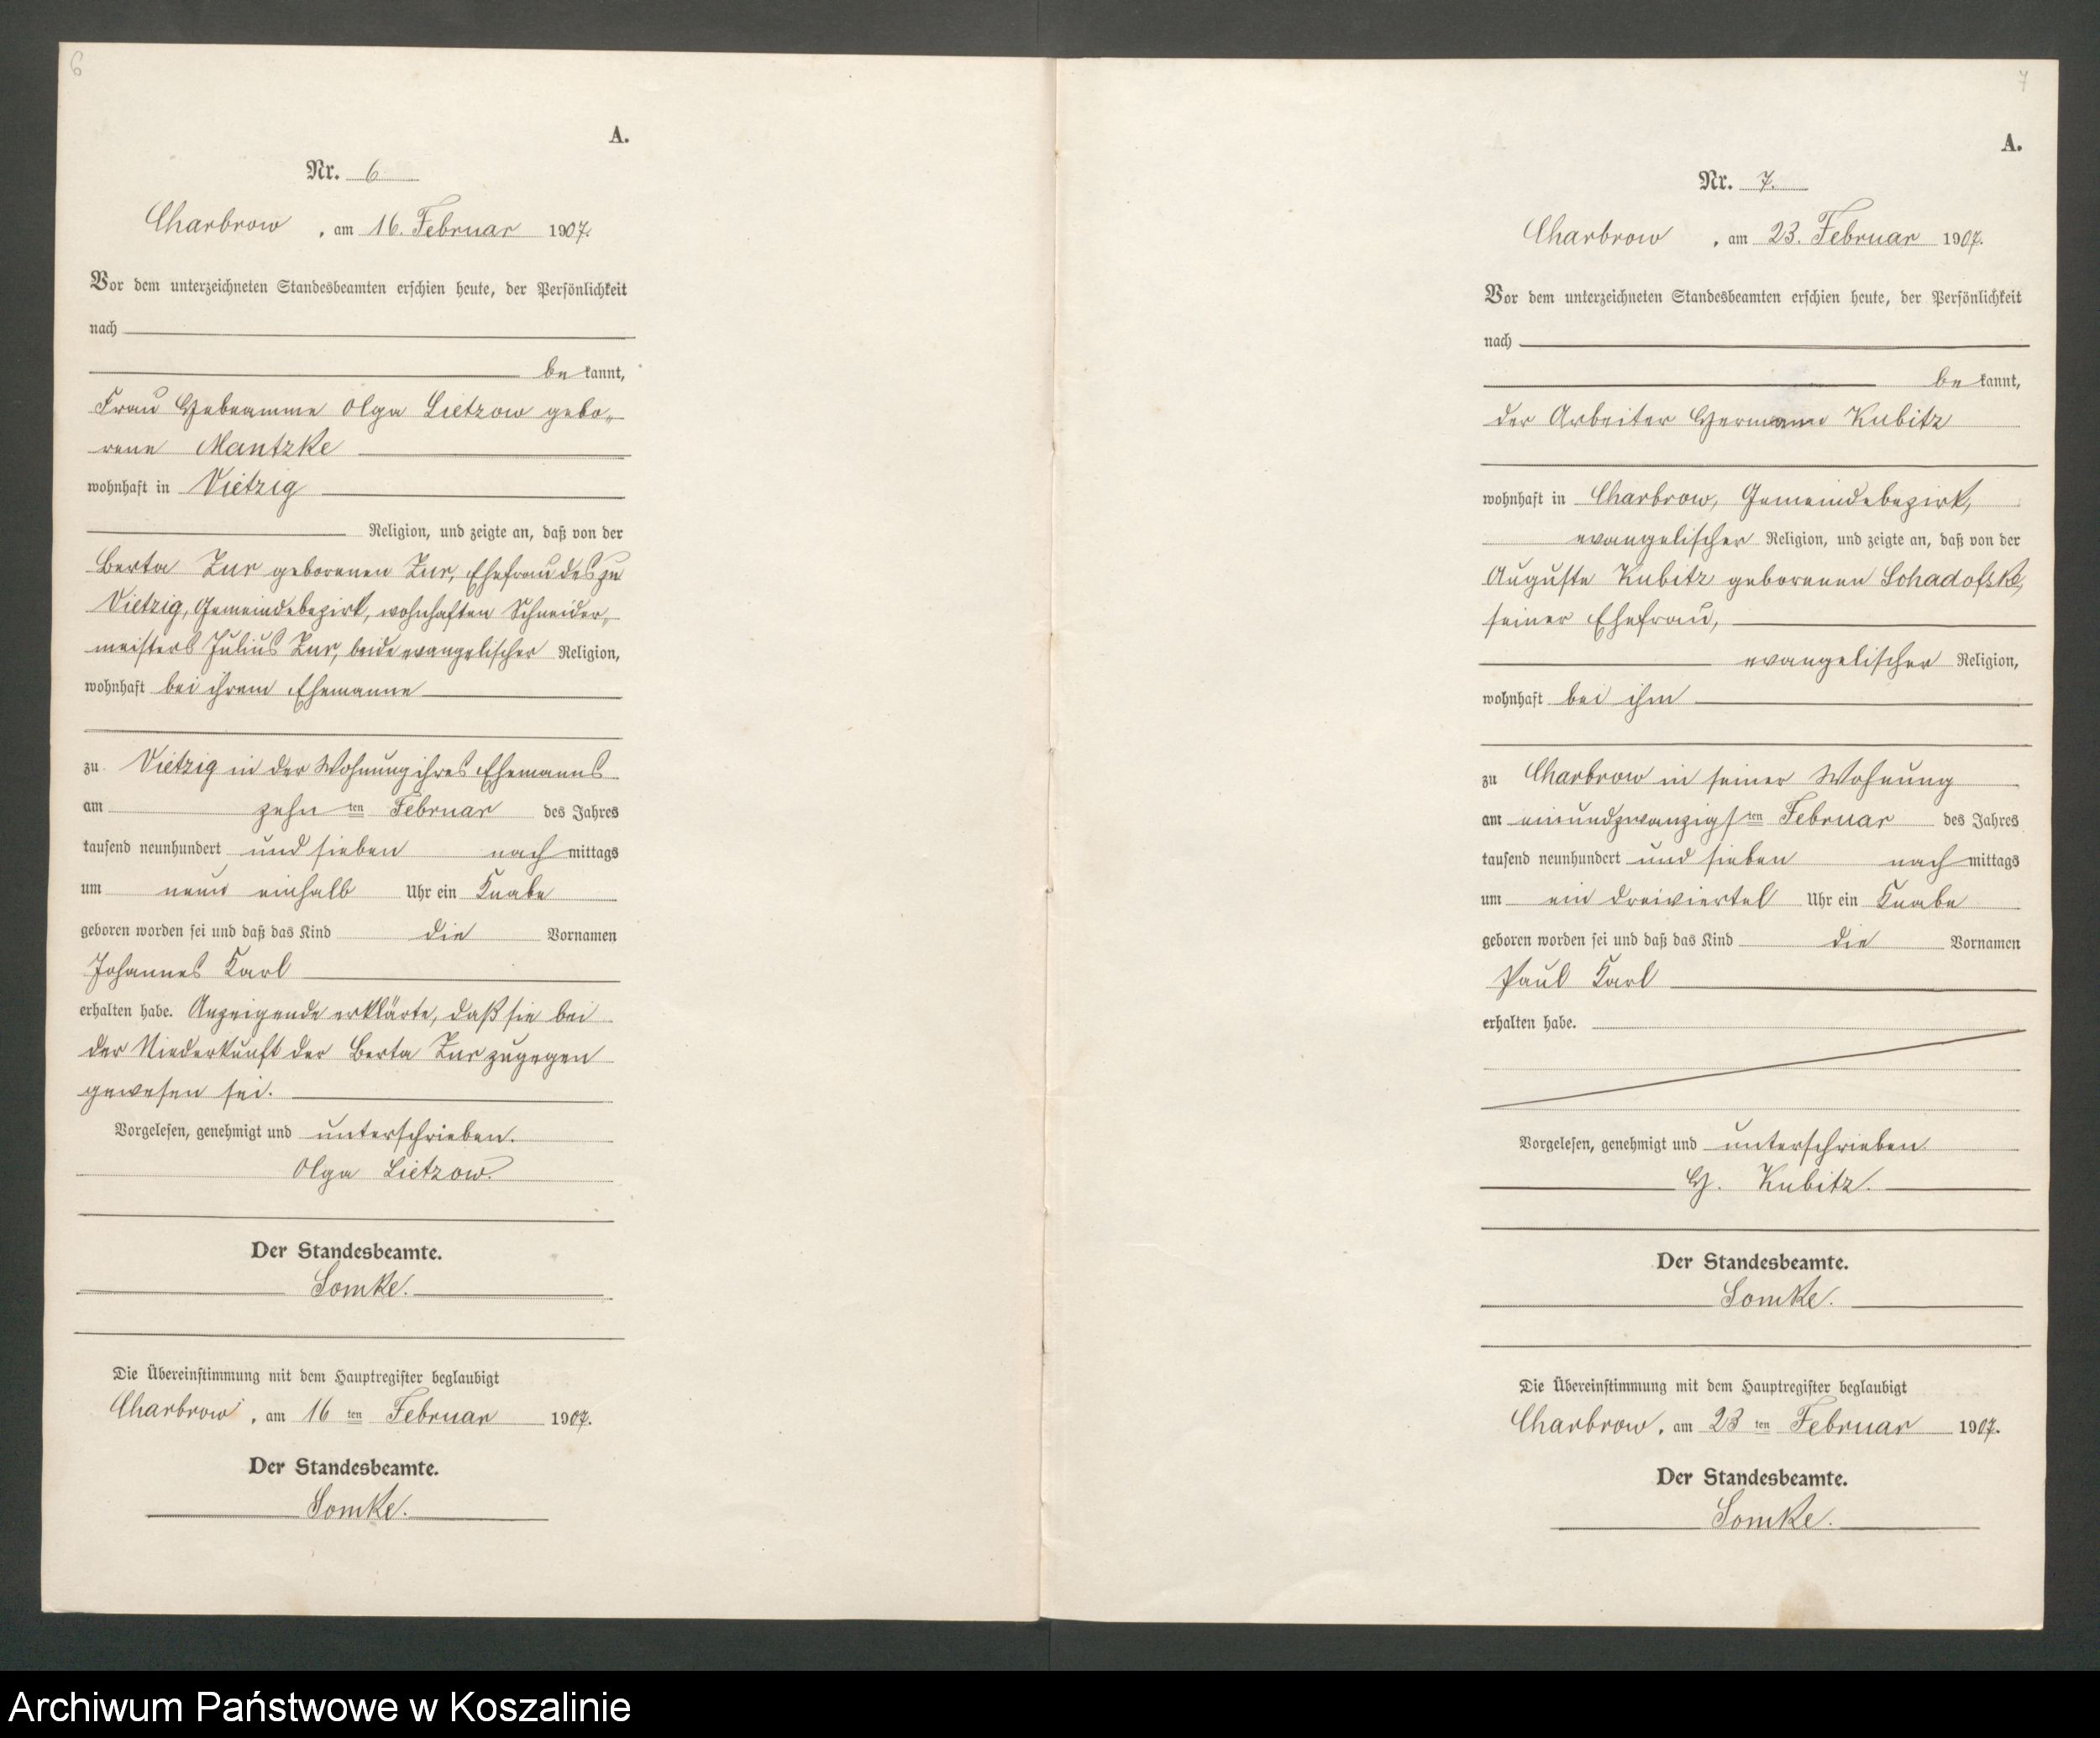 6
A.
Nr. 6
Charbrow, am 16. Februar 1907.
Vor dem unterzeichneten Standesbeamten erschien heute, der Persönlichkeit
nach
be kannt,
Frau Hebeamme Olga Lietzow gebo„
rene Mantzke
wohnhaft in Vietzig
Religion, und zeigte an, daß von der
Berta Zur geborenen Zur, Ehefrau des zu
Vietzig, Gemeindebezirk, wohnhaften Schneider„
meisters Julius Zur, beide evangelischer Religion,
wohnhaft bei ihrem Ehemanne
zu Vietzig in der Wohnung ihres Ehemanns
am zehn ten Februar des Jahres
tausend neunhundert und sieben nach mittags
um neun einhalb Uhr ein Knabe
geboren worden sei und daß das Kind die Vornamen
Johannes Karl
erhalten habe. Anzeigende erklärte, daß sie bei
der Niederkunft der Berta Zur zugegen
gewesen sei.
Vorgelesen, genehmigt und unterschrieben.
Olga Lietzow.
Der Standesbeamte.
Somke.
Die Übereinstimmung mit dem Hauptregister beglaubigt
Charbrow, am 16 ten Februar 1907.
Der Standesbeamte.
Somke.
7
A.
Nr. 7.
Charbrow, am 23. Februar 1907.
Vor dem unterzeichneten Standesbeamten erschien heute, der Persönlichkeit
nach
be kannt,
der Arbeiter Hermann Kubitz
wohnhaft in Charbrow, Gemeindebezirk,
evangelischer Religion, und zeigte an, daß von der
Auguste Kubitz geborenen Schadofske,
seiner Ehefrau,
evangelischer Religion,
wohnhaft bei ihm
zu Charbrow in seiner Wohnung
am einundzwanzigs ten Februar des Jahres
tausend neunhundert und sieben nach mittags
um ein dreiviertel Uhr ein Knabe
geboren worden sei und daß das Kind die Vornamen
Paul Karl
erhalten habe.
Vorgelesen, genehmigt und unterschrieben.
H. Kubitz.
Der Standesbeamte.
Somke.
Die Übereinstimmung mit dem Hauptregister beglaubigt
Charbrow, am 23 ten Februar 1907.
Der Standesbeamte.
Somke.
Archiwum Państwowe w Koszalinie